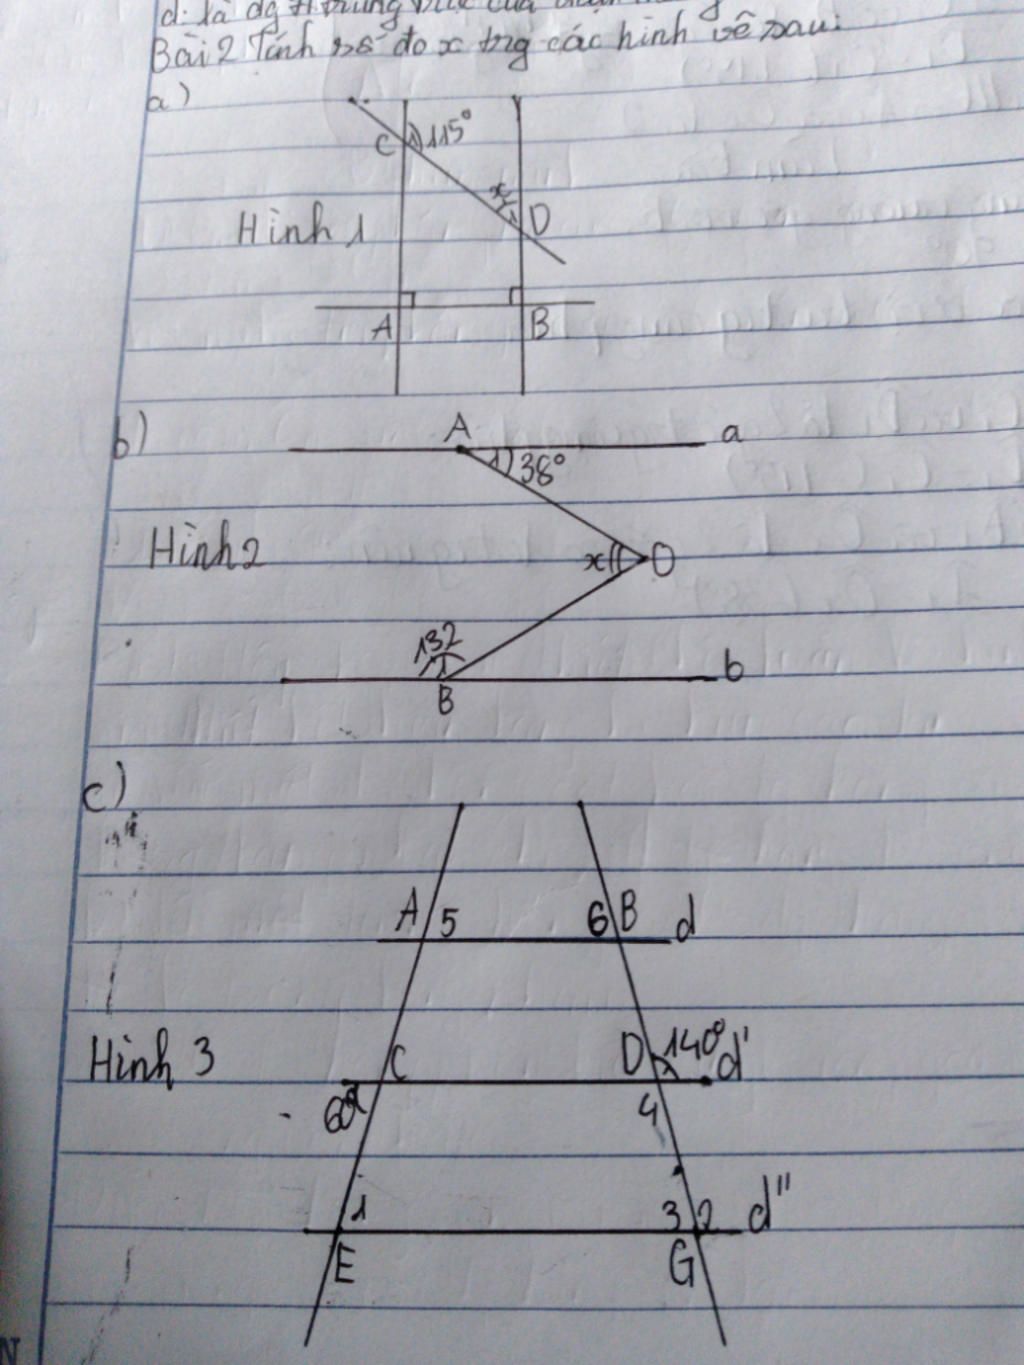 d: là đg
Bài 2 Tính số đo x trg các hình vẽ sau:
a)
C 1 115°
x
D
Hình 1
A B
b)
A a
1 38°
Hình 2
x O
132
1
b
B
c)
A 5 6 B d
Hình 3
C D 140° d'
60° 4
1 3 2 d"
E G